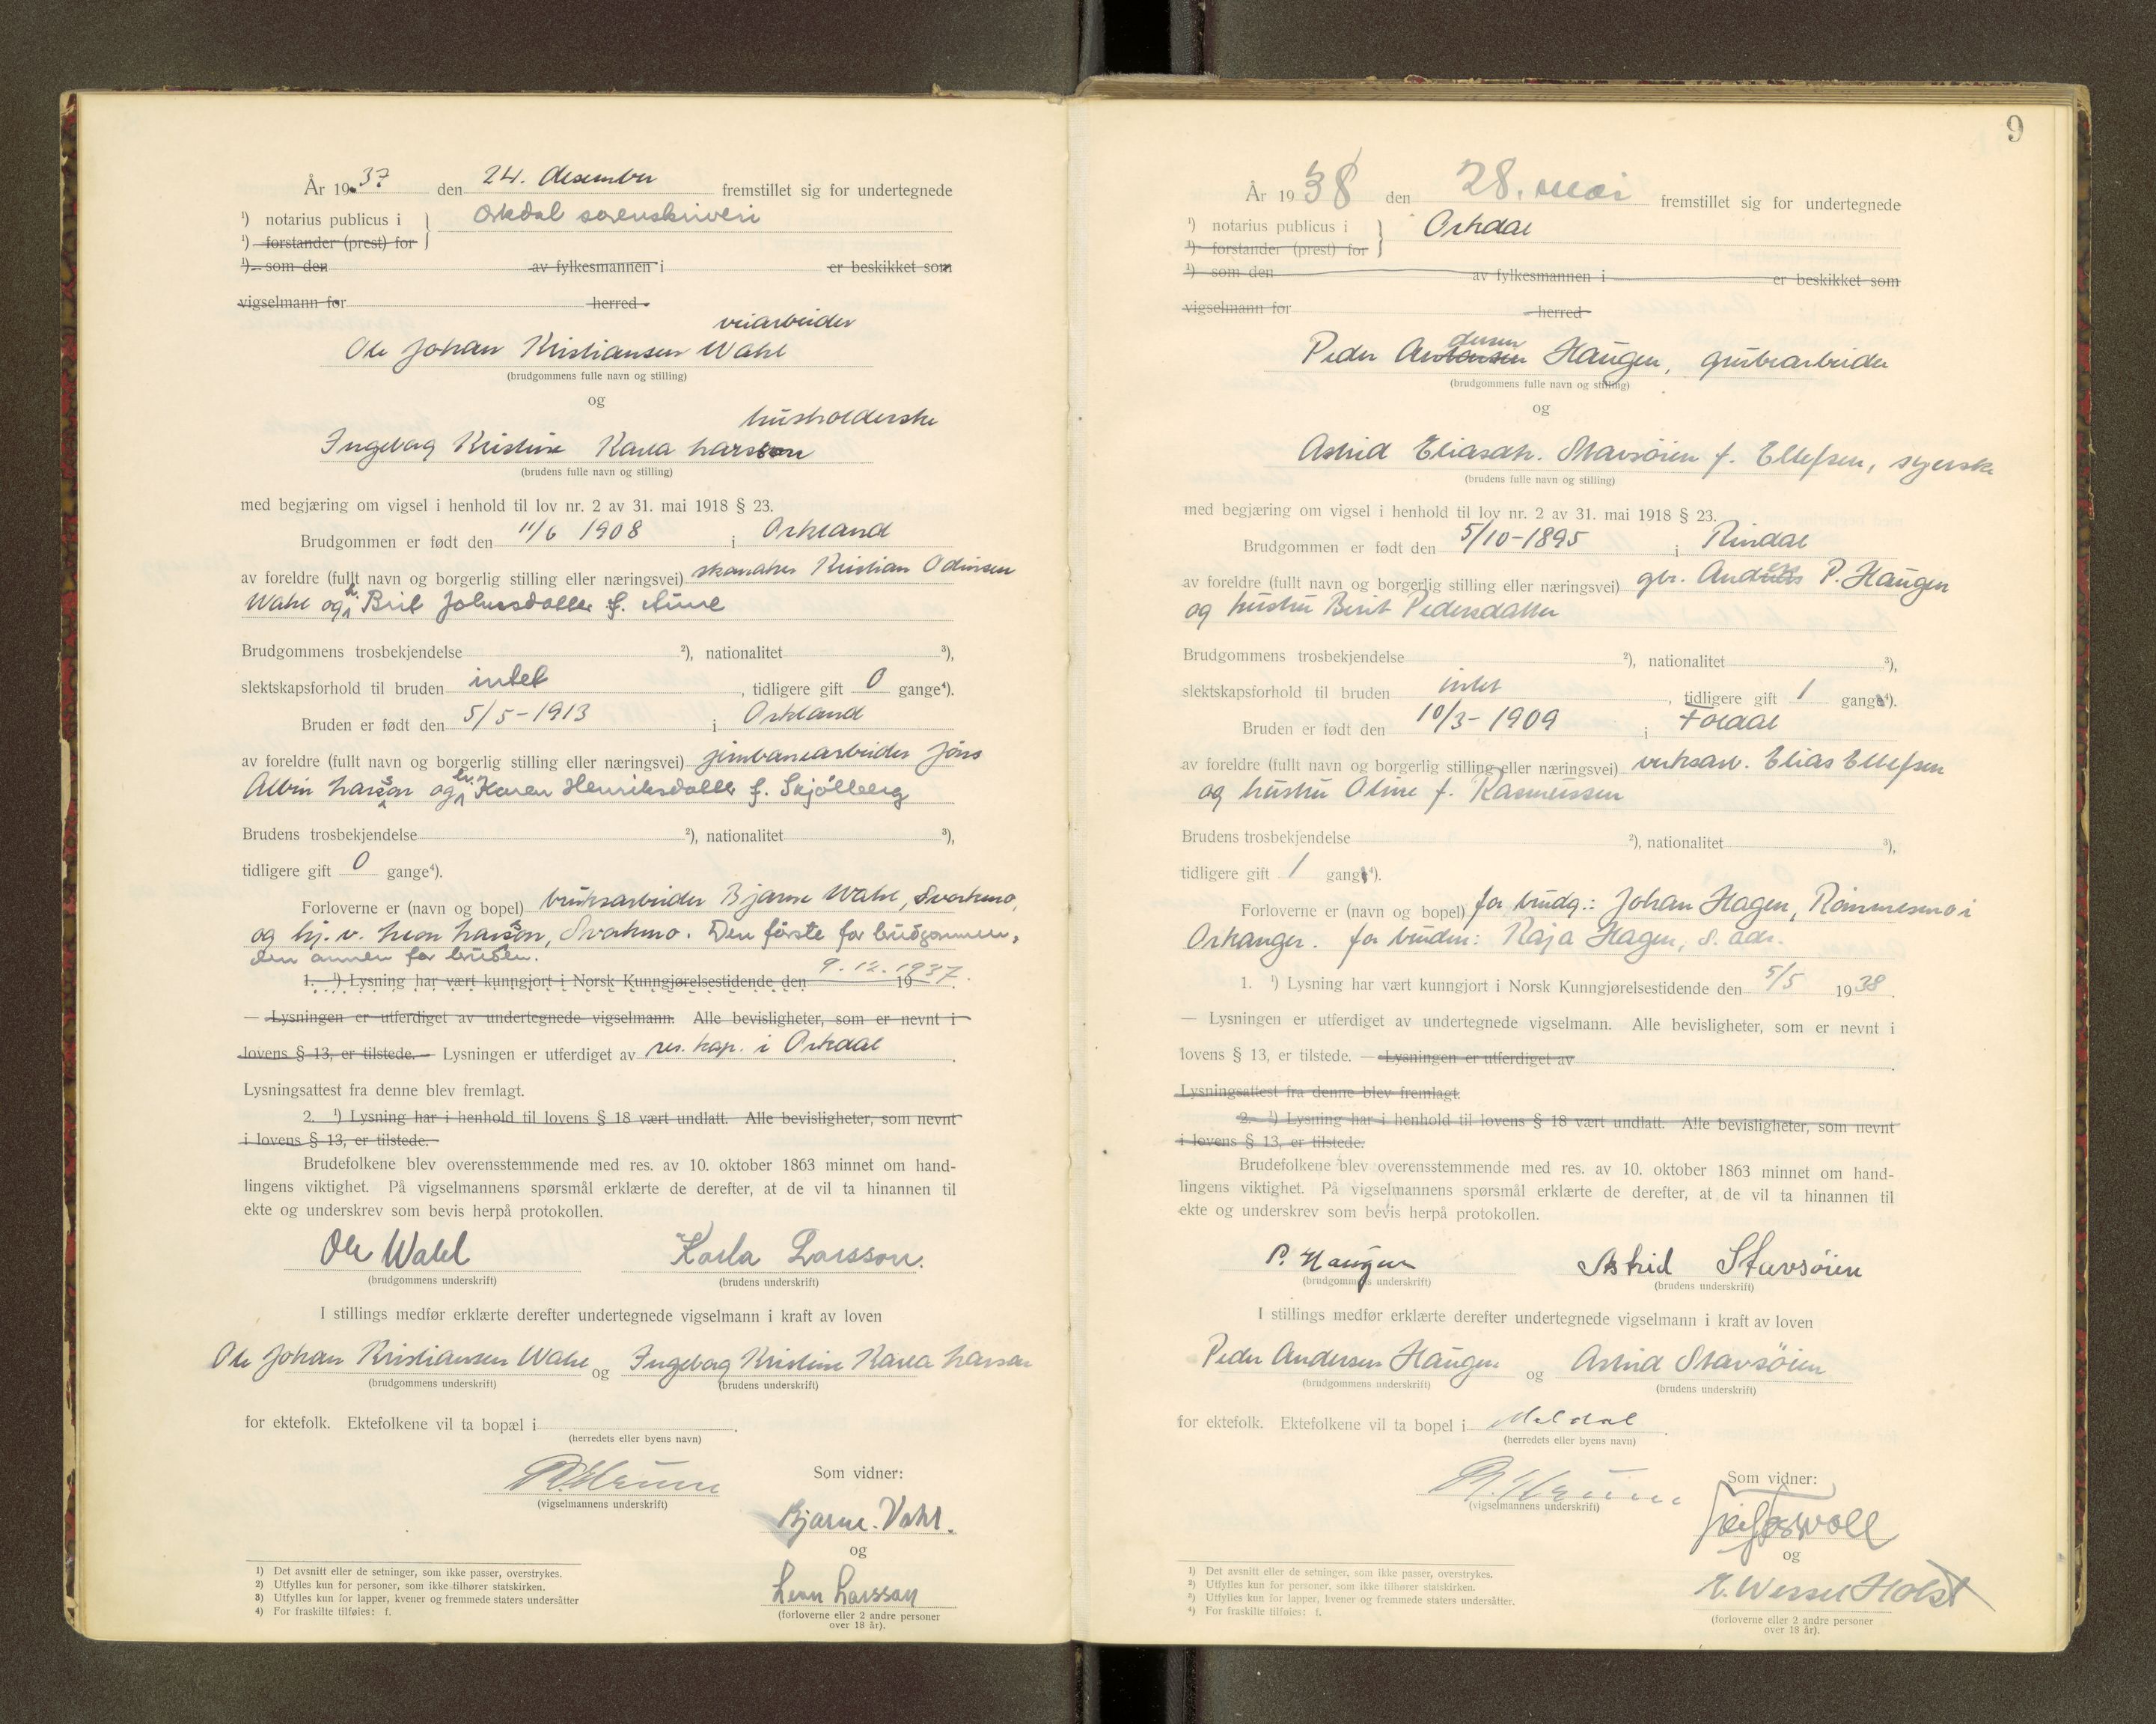 År 1937 den 24. desember fremstillet sig for undertegnede
¹) notarius publicus i } Orkdal sorenskriveri
¹) forstander (prest) for
¹) som den av fylkesmannen i er beskikket som
vigselmann for herred
veiarbeider
Ole Johan Kristiansen Wahl
(brudgommens fulle navn og stilling)
og
husholderske
Ingeborg Kristine Karla Larsson
(brudens fulle navn og stilling)
med begjæring om vigsel i henhold til lov nr. 2 av 31. mai 1918 § 23.
Brudgommen er født den 11/6 1908 i Orkland
av foreldre (fullt navn og borgerlig stilling eller næringsvei) skomaker Kristian Odinsen
Wahl og h. Brit Johnsdatter f. Aune
Brudgommens trosbekjendelse ²), nationalitet ³),
slektskapsforhold til bruden intet, tidligere gift 0 gange⁴).
Bruden er født den 5/5-1913 i Orkland
av foreldre (fullt navn og borgerlig stilling eller næringsvei) jernbanearbeider Jöns
Albin Larsson og h. Karen Henriksdatter f. Skjölberg
Brudens trosbekjendelse ²), nationalitet ³),
tidligere gift 0 gange⁴).
Forloverne er (navn og bopel) bruksarbeider Bjarne Wahl, Svorkmo,
og hj. v. Leon Larsson, Svorkmo. Den första for brudgommen,
den annen for bruden.
1. ¹) Lysning har vært kunngjort i Norsk Kunngjørelsestidende den 9.12.1937.
— Lysningen er utferdiget av undertegnede vigselmann. Alle bevisligheter, som er nevnt i
lovens § 13, er tilstede. — Lysningen er utferdiget av res. kap. i Orkdal.
Lysningsattest fra denne blev fremlagt.
2. ¹) Lysning har i henhold til lovens § 18 vært undlatt. Alle bevisligheter, som nevnt
i lovens § 13, er tilstede.
Brudefolkene blev overensstemmende med res. av 10. oktober 1863 minnet om hand-
lingens viktighet. På vigselmannens spørsmål erklærte de derefter, at de vil ta hinannen til
ekte og underskrev som bevis herpå protokollen.
Ole Wahl Karla Larsson.
(brudgommens underskrift) (brudens underskrift)
I stillings medfør erklærte derefter undertegnede vigselmann i kraft av loven
Ole Johan Kristiansen Wahl og Ingeborg Kristine Karla Larsson
(brudgommens underskrift) (brudens underskrift)
for ektefolk. Ektefolkene vil ta bopæl i .
(herredets eller byens navn)
Som vidner:
(vigselmannens underskrift)
Bjarne. Vahl.
og
Leon Larsson
(forloverne eller 2 andre personer
over 18 år).
¹) Det avsnitt eller de setninger, som ikke passer, overstrykes.
²) Utfylles kun for personer, som ikke tilhører statskirken.
³) Utfylles kun for lapper, kvener og fremmede staters undersåtter
⁴) For fraskilte tilføies: f.
9
År 1938 den 28. mai fremstillet sig for undertegnede
¹) notarius publicus i } Orkdal
¹) forstander (prest) for
¹) som den av fylkesmannen i er beskikket som
vigselmann for herred
dersen
Peder Haugen, grubearbeider
(brudgommens fulle navn og stilling)
og
Astrid Eliasdtr. Stavsöien f. Ellefsen, syerske
(brudens fulle navn og stilling)
med begjæring om vigsel i henhold til lov nr. 2 av 31. mai 1918 § 23.
Brudgommen er født den 5/10-1895 i Rindal
av foreldre (fullt navn og borgerlig stilling eller næringsvei) gbr. Anders P. Haugen
og hustru Berit Pedersdatter
Brudgommens trosbekjendelse ²), nationalitet ³),
slektskapsforhold til bruden intet, tidligere gift 1 gang⁴).
Bruden er født den 10/3-1909 i Foldal
av foreldre (fullt navn og borgerlig stilling eller næringsvei) verksarb. Elias Ellefsen
og hustru Oline f. Rasmussen
Brudens trosbekjendelse ²), nationalitet ³),
tidligere gift 1 gang⁴).
Forloverne er (navn og bopel) for brudg.: Johan Hagen, Römmesmo i
Orkanger. for bruden: Kaja Hagen, s. adr.
1. ¹) Lysning har vært kunngjort i Norsk Kunngjørelsestidende den 5/5 1938.
— Lysningen er utferdiget av undertegnede vigselmann. Alle bevisligheter, som er nevnt i
lovens § 13, er tilstede. — Lysningen er utferdiget av .
Lysningsattest fra denne blev fremlagt.
2. ¹) Lysning har i henhold til lovens § 18 vært undlatt. Alle bevisligheter, som nevnt
i lovens § 13, er tilstede.
Brudefolkene blev overensstemmende med res. av 10. oktober 1863 minnet om hand-
lingens viktighet. På vigselmannens spørsmål erklærte de derefter, at de vil ta hinannen til
ekte og underskrev som bevis herpå protokollen.
P. Haugen Astrid Stavsöien
(brudgommens underskrift) (brudens underskrift)
I stillings medfør erklærte derefter undertegnede vigselmann i kraft av loven
Peder Andersen Haugen og Astrid Stavsöien
(brudgommens underskrift) (brudens underskrift)
for ektefolk. Ektefolkene vil ta bopel i Meldal.
(herredets eller byens navn)
Som vidner:
(vigselmannens underskrift)
og
E. Wessel Holst
(forloverne eller 2 andre personer
over 18 år).
¹) Det avsnitt eller de setninger, som ikke passer, overstrykes.
²) Utfylles kun for personer, som ikke tilhører statskirken.
³) Utfylles kun for lapper, kvener og fremmede staters undersåtter.
⁴) For fraskilte tilføies: f.